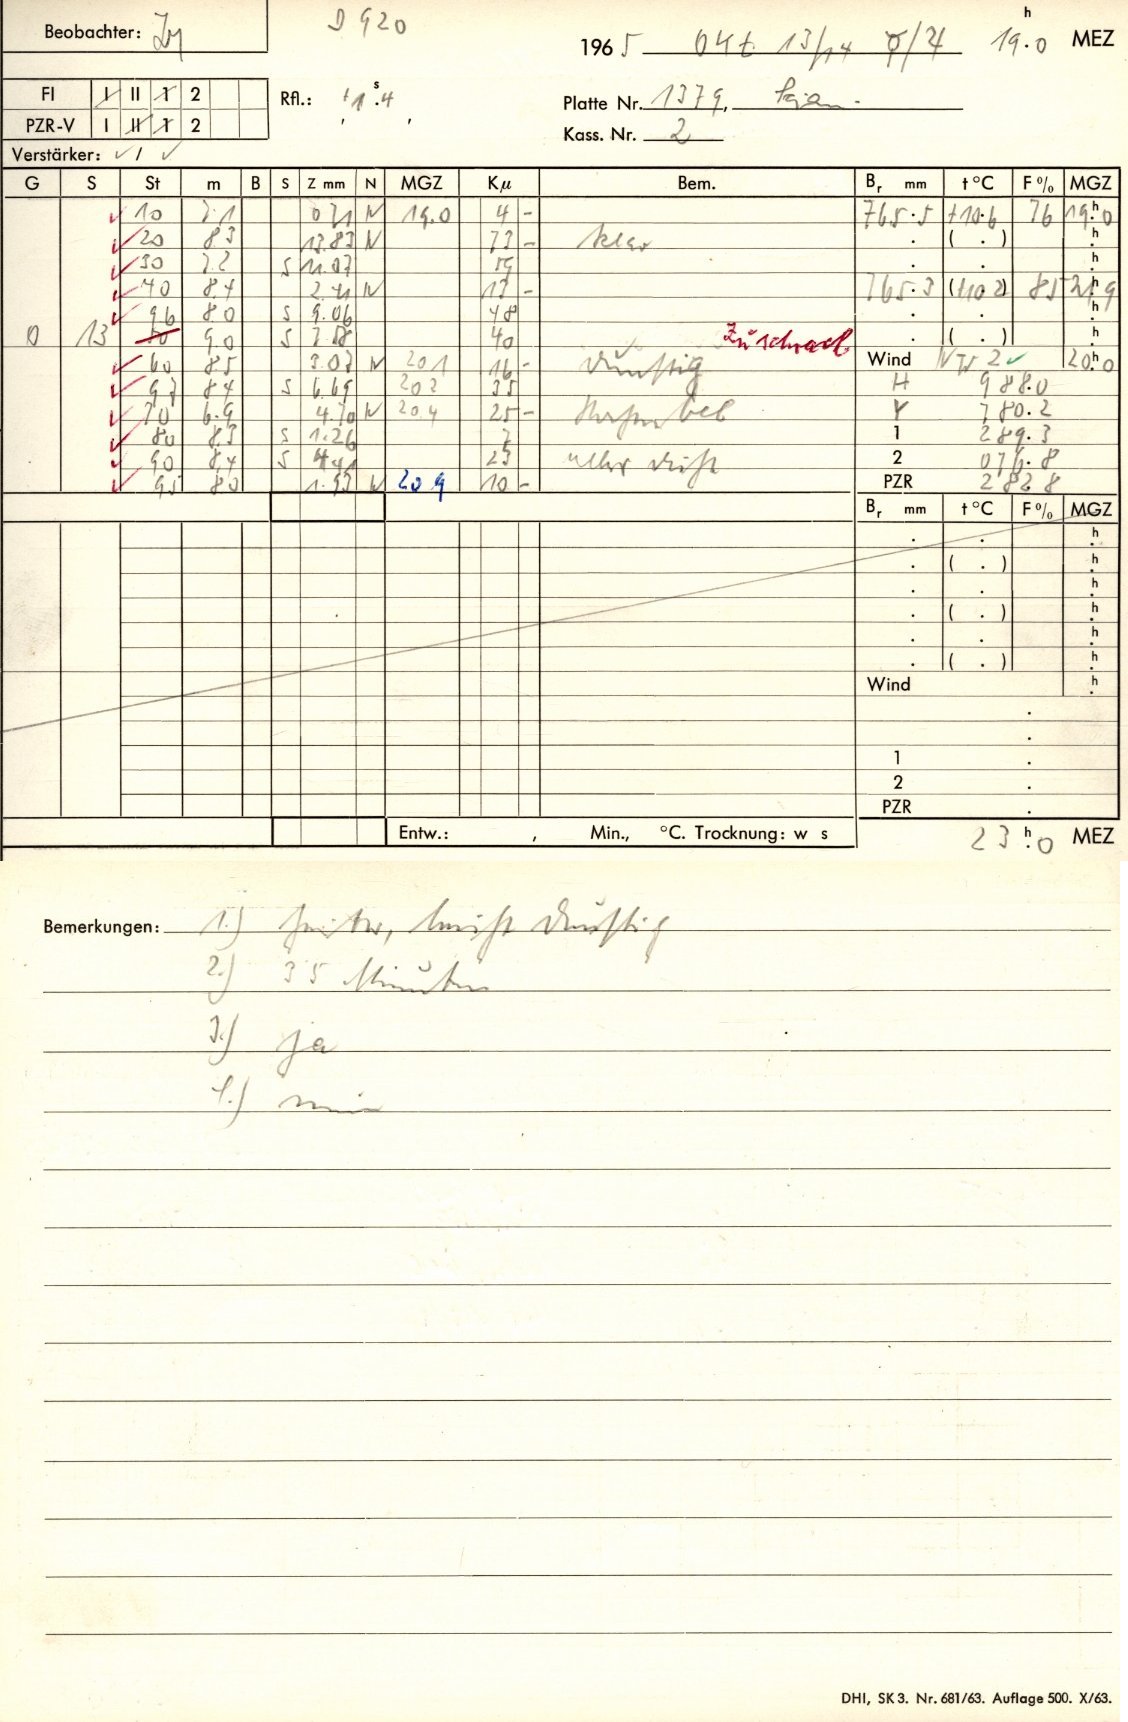 D 920
Beobachter:
1965 Okt 13/14 19h.0 MEZ
FI I II 1 2
Rfl.: +1s.4
Platte Nr. 1379,
PZR-V I II 1 2
Kass. Nr. 2
Verstärker: ✓ I ✓
G S St m B S Z mm N MGZ Kμ Bem. Br mm t °C F % MGZ
10 7.1 0 71 N 19.0 4 - 765.5 +10.6 76 19h.0
20 8.3 13.83 N 73 - klar . ( . ) h.
30 7.2 S 11.07 59 . . h.
40 8.4 2.41 N 13 - 765.3 (+10 2) 85 21h.9
96 8.0 S 9.06 48 . . h.
0 13 50 9.0 S 7.58 40 Zu schwach . ( . ) h.
60 8.5 3.07 N 20 1 16 - dunstig Wind 2 ✓ 20h.0
97 8.4 S 6.69 20 2 35 H 988.0
70 6.9 4.70 N 20.4 25 - Y 780.2
80 8.3 S 1.26 7 1 289.3
90 8.4 S 4.41 23 2 076.8
95 8.0 1.93 N 20 9 10 - PZR 282 8
Br mm t °C F % MGZ
. . h.
. ( . ) h.
. . h.
. ( . ) h.
. . h.
. ( . ) h.
Wind h.
.
.
1 .
2 .
PZR .
Entw.: , Min., °C. Trocknung: w s
23h.0 MEZ
Bemerkungen: 1.) heiter, leicht dunstig
2.) 35 Minuten
3.) ja
4.) nein
DHI, SK 3. Nr. 681/63. Auflage 500. X/63.